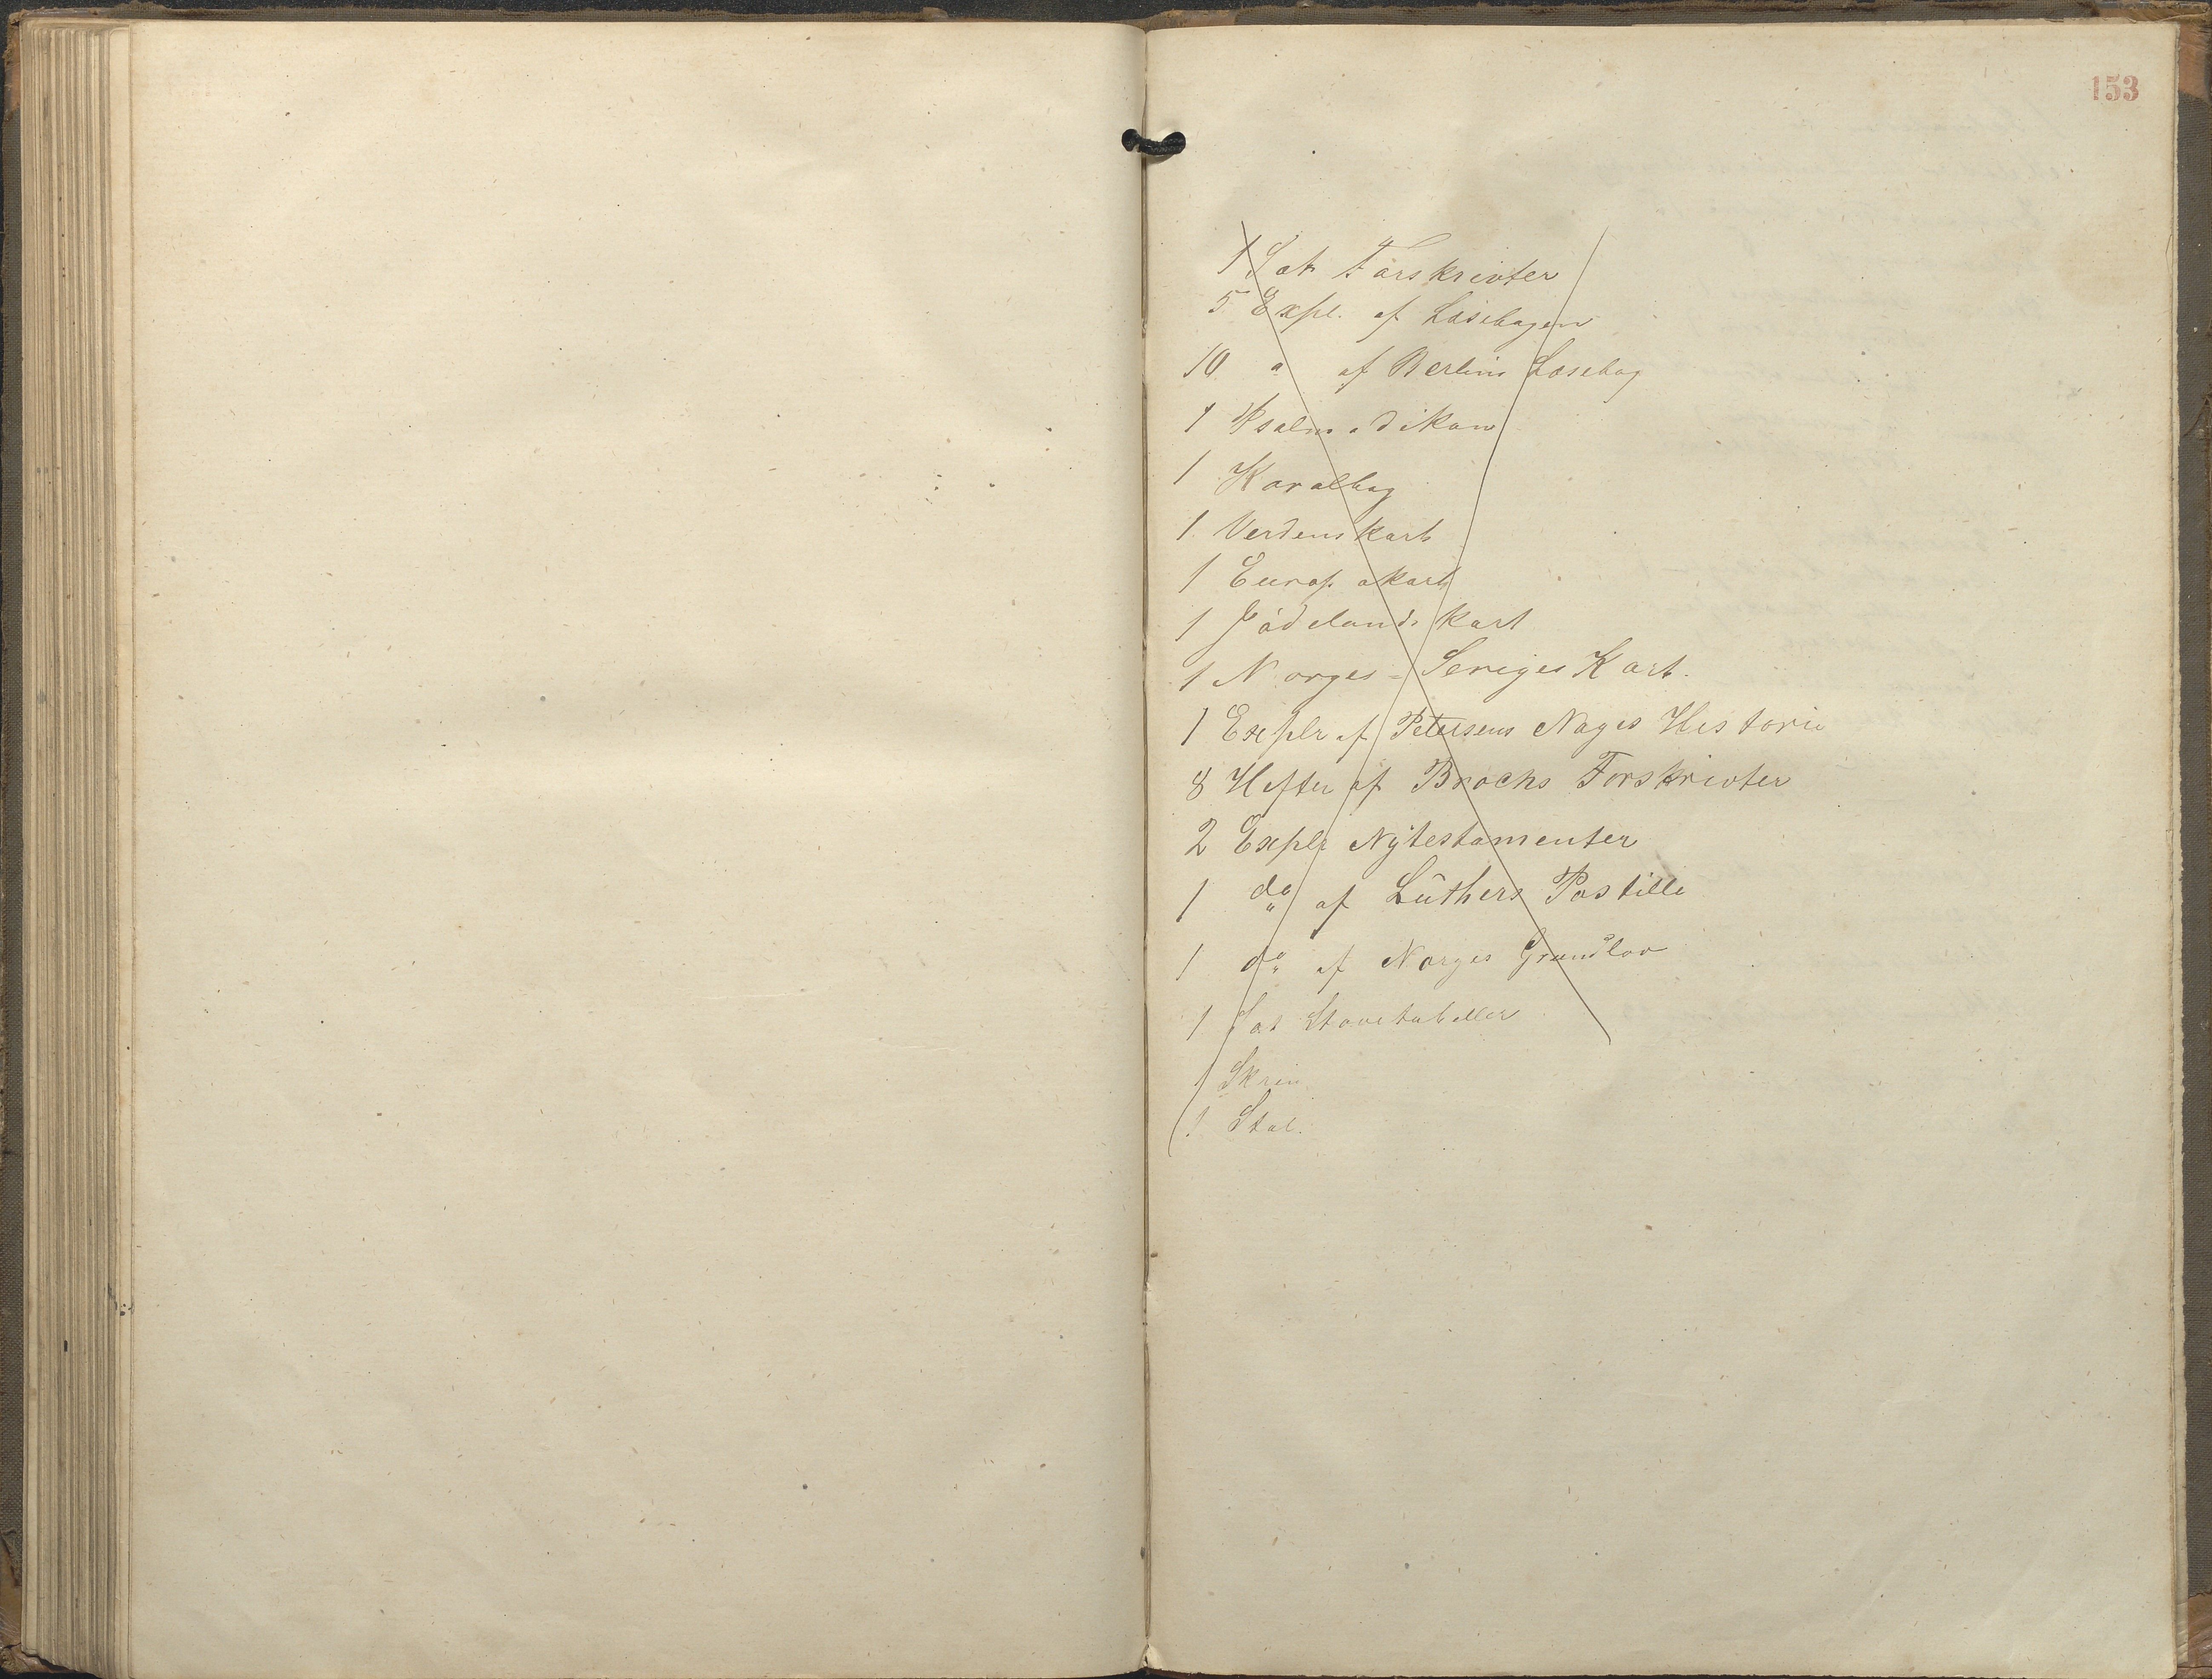 153
1 Sat Forskrivter
5 Expl. af Läsebogen
10 " af Berlins Läsebog
1 Psalmodikon
1 Koralbog
1 Verdenskart
1 Europakart
1 Jödelands kart
1 Norges - Seriges Kart.
1 Explr af Petersens Noges Historie
8 Hefter af Brochs Forskrivter
2 Explr Nÿtestamenter
1 do " af Lüthers Postille
1 do " af Norges Grundlov
1 Sat Stavetabeller
1 Skrin
1 Stol.